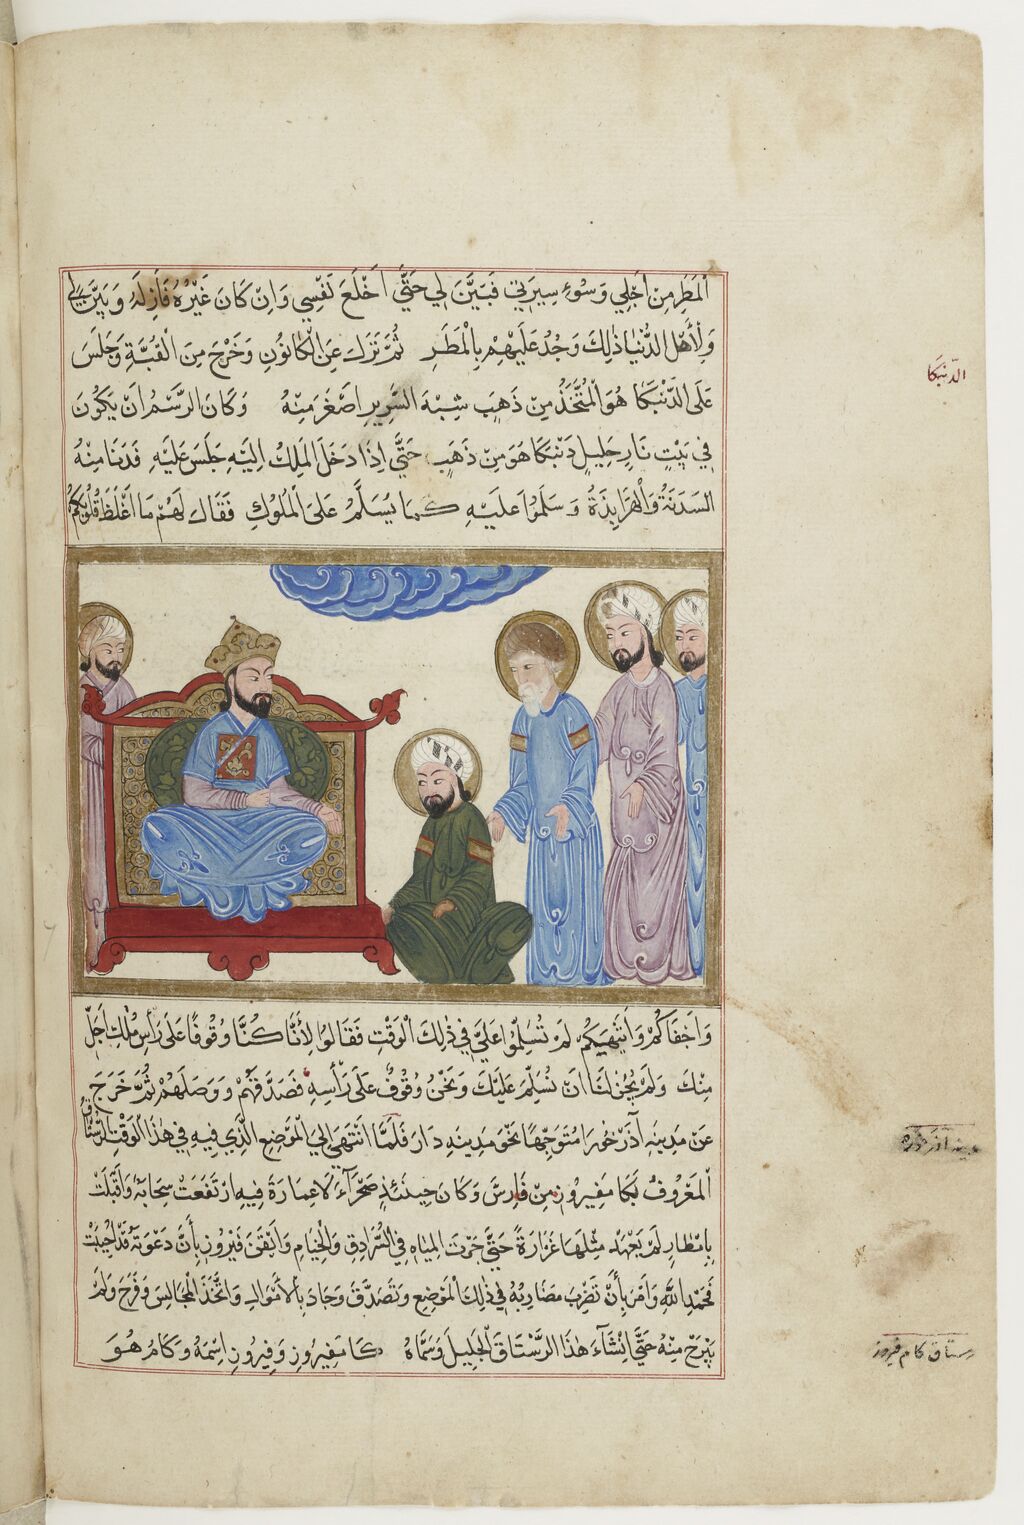 اَلْمَطَرِ مِنْ اَجْلِي وَسُوءِ سِيرَتِي فَبَيِّنْ لِي حَتَّي اَخْلَعَ نَفْسِي وَاِنْ كَانَ غَيْرُهُ فَاَزِلْهُ وَبَيِّنْ لِي
وَلِاَهْلِ الدُّنْيَا ذٰلِكَ وَجُدْ عَلَيْهِمْ بِالْمَطَرِ ثُمَّ نَزَلَ عَنِ الْكَانُونِ وَخَرَجَ مِنَ الْقُبَّةِ وَجَلَسَ
الدّنبكا
عَلَى الدَّنْبَكَا هُوَ الْمُتَّخَذُ مِنْ ذَهَبٍ شِبْهَ السَّرِيرِ اَصْغَرَ مِنْهُ وَكَانَ الرَّسْمُ اَنْ يَكُونَ
فِي بَيْتِ نَارٍ جَلِيلٍ دَنْبَكَا هُوَ مِنْ ذَهَبٍ حَتَّي اِذَا دَخَلَ الْمَلِكُ اِلَيْهِ جَلَسَ عَلَيْهِ فَدَنَا مِنْهُ
السَدَنَةُ وَالْهَرَابِذَةُ وَسَلَّمُوا عَلَيْهِ كَمَا يُسَلَّمُ عَلَى الْمُلُوكِ فَقَالَ لَهُمْ مَا اَغْلَظَ قُلُوبَكُمْ
وَاَجْفَاكُمْ لَمْ تُسَلِّمُوا عَلَيَّ فِي ذٰلِكَ الْوَقْتِ فَقَالُوا لِاَنَّا كُنَّا وُقُوفًا عَلَى رَأْسِ مَلِكٍ اَجَلَّ
مِنْكَ وَلَمْ يَجُزْ لَنَا اَنْ نُسَلِّمَ عَلَيْكَ وَنَحْنُ وُقُوفٌ عَلَى رَأْسِهِ فَصَدَّقَهُمْ وَوَصَلَهُمْ ثُمَّ خَرَجَ
عَنْ مَدِينَةِ آذَرْخُورَا مُتَوَجِّهًا نَحْوَ مَدِينَةِ دَارَ فَلَمَّا انْتَهَى اِلَى الْمَوْضِعِ الَّذِي فِيهِ فِي هٰذَا الْوَقْتِ الرُّسْتَاقُ
مدينه آذرخوره
الْمَعْرُوفُ بِكَامْفِيرُوزَ مِنْ فَارِسَ وَكَانَ حِينَئِذٍ صَحْرَآءَ لَا عِمَارَةَ فِيهِ اِرْتَفَعَتْ سَحَابَةٌ وَاَقْبَلَتْ
بِاَمْطَارٍ لَمْ يُعْهَدْ مِثْلُهَا غَزَارَةً حَتَّي جَرَتِ الْمِيَاهُ فِي السُّرَادِقِ وَالْخِيَامِ وَاَيْقَنَ فَيْرُوزُ بِاَنَّ دَعْوَتَهُ قَدْ اُجِيبَتْ
فَحَمِدَ اللهَ وَاَمَرَ بِاَنْ تُضْرَبَ مَضَارِبُهُ فِي ذٰلِكَ الْمَوْضِعِ وَتَصَدَّقَ وَجَادَ بِالْاَمْوَالِ وَاتَّخَذَ الْمَجَالِسَ وَفَرِحَ وَلَمْ
يَبْرَحْ مِنْهُ حَتَّي اِنْشَآءَ هٰذَا الرُّسْتَاقَ الْجَلِيلَ وَسَمَّاهُ كَامْفِيرُوزَ وَفِيرُوزُ اِسْمُهُ وَكَامُ هُوَ
رستاق كام فيروز